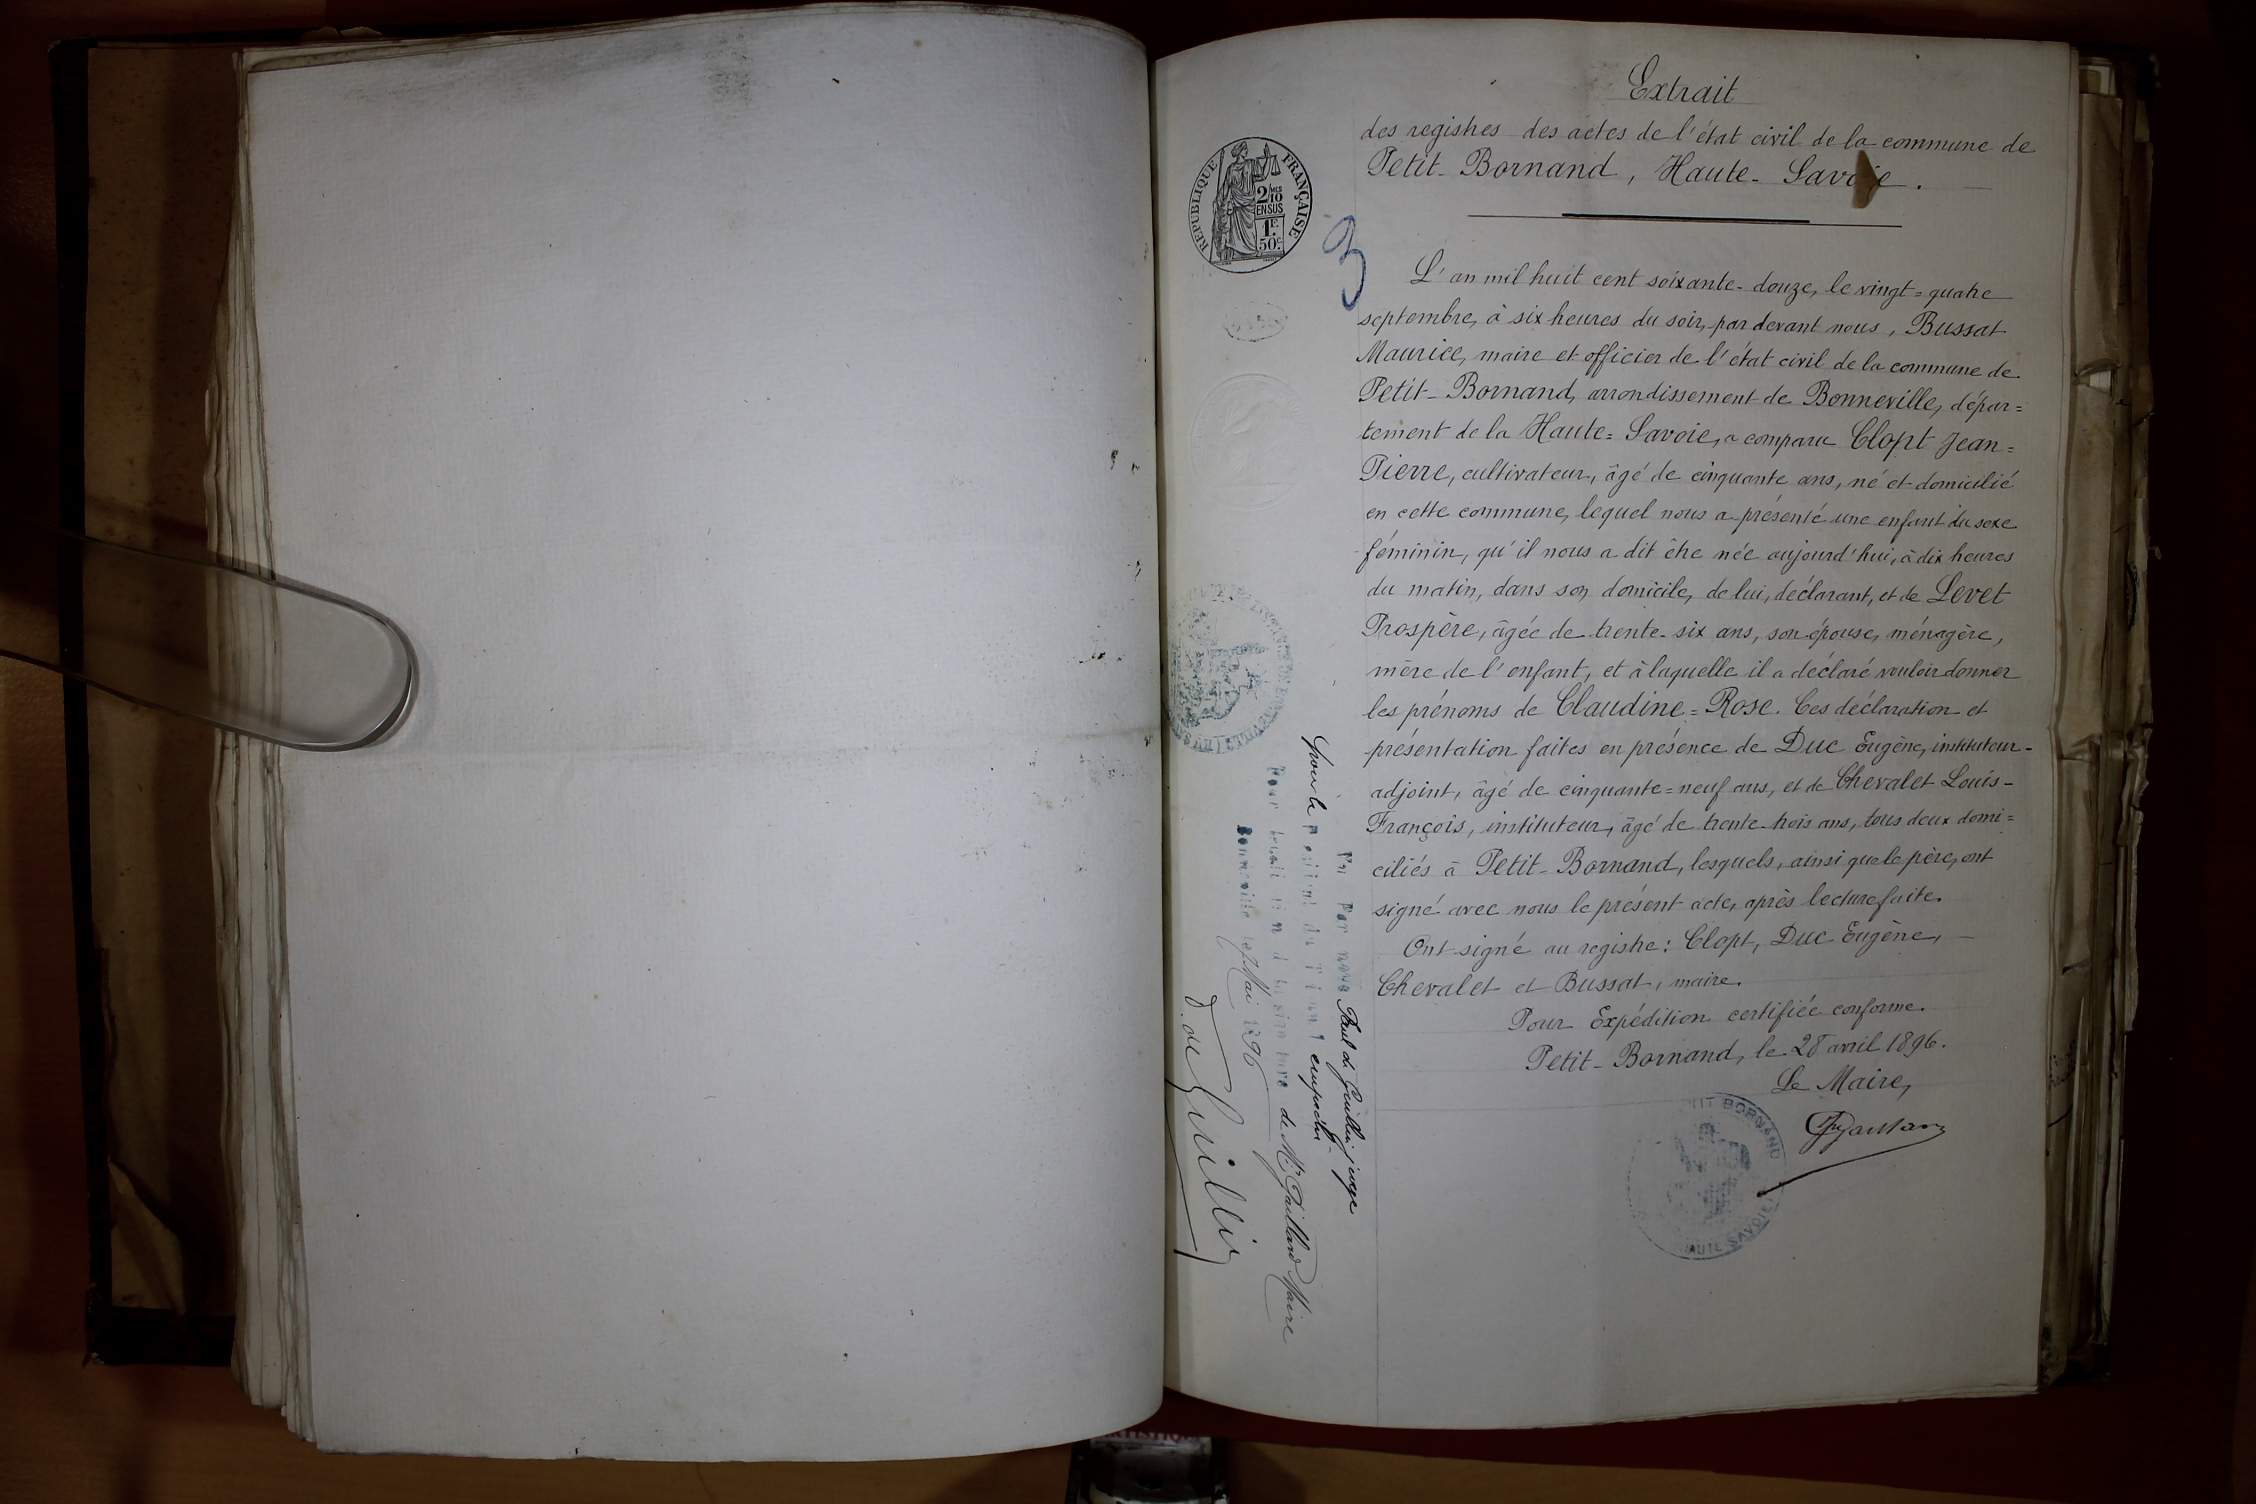 Extrait
des registres des actes de l'état civil de la commune de
Petit-Bornand, Haute-Savoie.
RÉPUBLIQUE FRANÇAISE
2/10 MES
EN SUS
1F.
50c.
3
L'an mil huit cent soixante-douze, le vingt=quatre
septembre, à six heures du soir, par devant nous, Bussat
Maurice, maire et officier de l'état civil de la commune de
Petit-Bornand, arrondissement de Bonneville, dépar=
tement de la Haute=Savoie, a comparu Clopt Jean=
Pierre, cultivateur, âgé de cinquante ans, né et domicilié
en cette commune, lequel nous a présenté une enfant du sexe
féminin, qu'il nous a dit être née aujourd'hui, à dix heures
du matin, dans son domicile, de lui, déclarant, et de Levet
Prospère, âgée de trente-six ans, son épouse, ménagère,
mère de l'enfant, et à laquelle il a déclaré vouloir donner
les prénoms de Claudine=Rose. Ces déclaration et
présentation faites en présence de Duc Eugène, instituteur-
adjoint, âgé de cinquante=neuf ans, et de Chevalet Louis-
François, instituteur, âgé de trente-trois ans, tous deux domi=
ciliés à Petit-Bornand, lesquels, ainsi que le père, ont
signé avec nous le présent acte, après lecture faite.
Ont signé au registre: Clopt, Duc Eugène,
Chevalet et Bussat, maire.
Pour Expédition certifiée conforme.
Petit-Bornand, le 28 avril 1896.
Le Maire,
PETIT BORNAND
HAUTE SAVOIE
Vu Par nous Paul de Guillin juge
Pour le président du Tribunal empêché
Pour légalisation de la signature de Mr Gaillard Maire
Bonneville le 7 Mai 1896
P. de Guillin